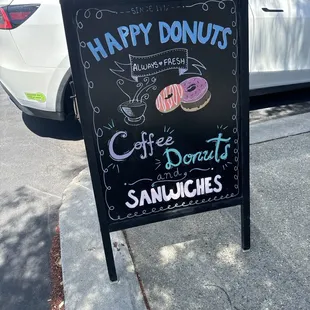 HAPPY DONUTS
ALWAYS FRESH
Coffee
Donuts
and
SANWICHES